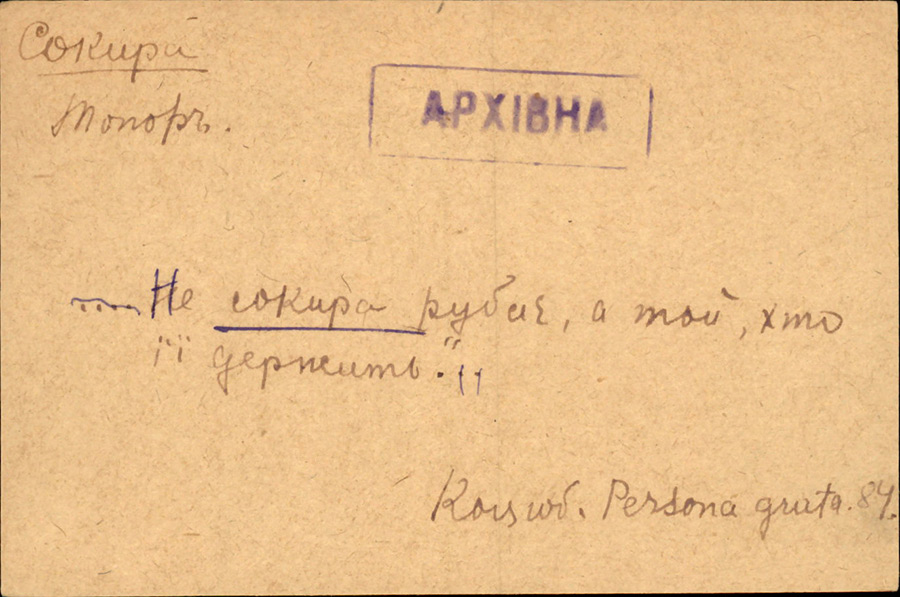 Сокира
Топоръ.
АРХІВНА
.... Не сокира рубає, а той, хто
її держить."
Коцюб. Persona grata. 84.